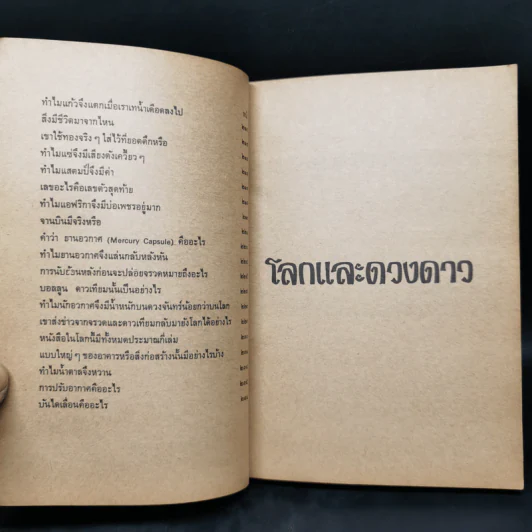 ทำไมแก้วจึงแตกเมื่อเราเทน้ำเดือดลงไป
สิ่งมีชีวิตมาจากไหน
เขาใช้ทองจริง ๆ ใส่ไว้ที่ยอดตึกหรือ
ทำไมแซ่จึงมีเสียงดังเควี้ยว ๆ
ทำไมแสตมป์จึงมีค่า
เลขอะไรคือเลขตัวสุดท้าย
ทำไมแอฟริกาจึงมีบ่อเพชรอยู่มาก
จานบินมีจริงหรือ
คำว่า ยานอวกาศ (Mercury Capsule) คืออะไร
ทำไมยานอวกาศจึงแล่นกลับหลังหัน
การนับย้อนหลังก่อนจะปล่อยจรวดหมายถึงอะไร
บอลลูน ดาวเทียมนั้นเป็นอย่างไร
ทำไมนักอวกาศจึงมีน้ำหนักบนดวงจันทร์น้อยกว่าบนโลก
เขาส่งข่าวจากจรวดและดาวเทียมกลับมายังโลกได้อย่างไร
หนังสือในโลกนี้มีทั้งหมดประมาณกี่เล่ม
แบบใหญ่ ๆ ของอาคารหรือสิ่งก่อสร้างนั้นมีอย่างไรบ้าง
ทำไมน้ำตาลจึงหวาน
การปรับอากาศคืออะไร
บันไดเลื่อนคืออะไร
โลกและดวงดาว